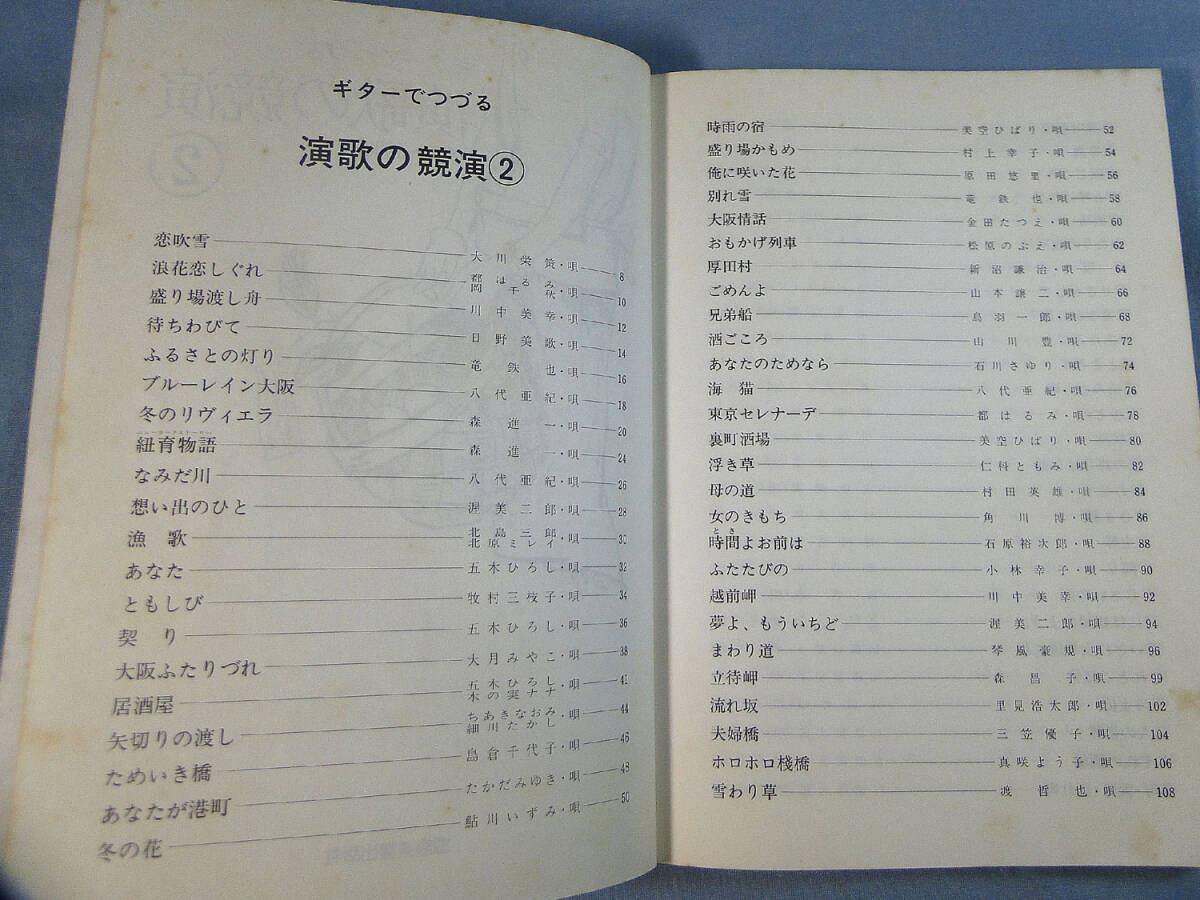 ギターでつづる
演歌の競演②
恋吹雪 大川栄策・唄 8
浪花恋しぐれ 都はるみ 岡千秋・唄 10
盛り場渡し舟 川中美幸・唄 12
待ちわびて 日野美歌・唄 14
ふるさとの灯り 竜鉄也・唄 16
ブルーレイン大阪 八代亜紀・唄 18
冬のリヴィエラ 森進一・唄 20
紐育物語 森進一・唄 24
なみだ川 八代亜紀・唄 26
想い出のひと 渥美二郎・唄 28
漁歌 北島三郎 北原ミレイ・唄 30
あなた 五木ひろし・唄 32
ともしび 牧村三枝子・唄 34
契り 五木ひろし・唄 36
大阪ふたりづれ 大月みやこ・唄 38
居酒屋 五木ひろし 木の実ナナ・唄 41
矢切りの渡し ちあきなおみ 細川たかし・唄 44
ためいき橋 島倉千代子・唄 46
あなたが港町 たかだみゆき・唄 48
冬の花 鮎川いずみ・唄 50
時雨の宿 美空ひばり・唄 52
盛り場かもめ 村上幸子・唄 54
俺に咲いた花 原田悠里・唄 56
別れ雪 竜鉄也・唄 58
大阪情話 金田たつえ・唄 60
おもかげ列車 松原のぶえ・唄 62
厚田村 新沼謙治・唄 64
ごめんよ 山本譲二・唄 66
兄弟船 鳥羽一郎・唄 68
酒ごころ 山川豊・唄 72
あなたのためなら 石川さゆり・唄 74
海猫 八代亜紀・唄 76
東京セレナーデ 都はるみ・唄 78
裏町酒場 美空ひばり・唄 80
浮き草 仁科ともみ・唄 82
母の道 村田英雄・唄 84
女のきもち 角川博・唄 86
とき
時間よお前は 石原裕次郎・唄 88
ふたたびの 小林幸子・唄 90
越前岬 川中美幸・唄 92
夢よ、もういちど 渥美二郎・唄 94
まわり道 琴風豪規・唄 96
立待岬 森昌子・唄 99
流れ坂 里見浩太郎・唄 102
夫婦橋 三笠優子・唄 104
ホロホロ棧橋 真咲よう子・唄 106
雪わり草 渡哲也・唄 108